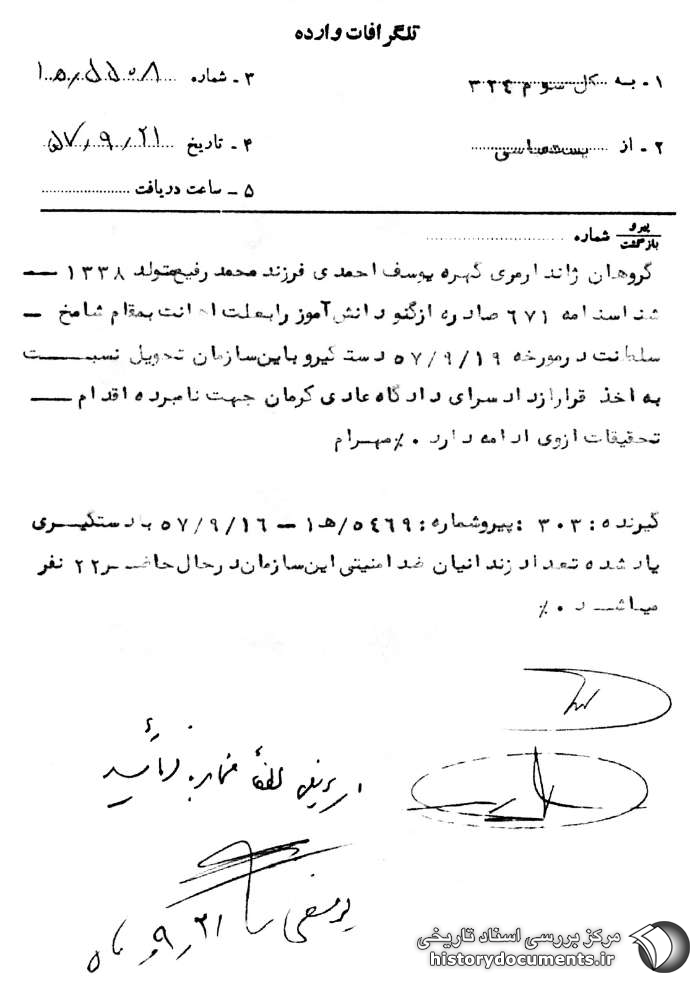 تلگرافات وارده
۱ - به ... کل سوم ۳۲۴
۳ - شماره
۲ - از
۴ - تاریخ ۵۷٫۹٫۲۱
۵ - ساعت دریافت
پیرو
بازگشت
شماره
گروهان ژاندارمری گهره یوسف احمدی فرزند محمد رفیع متولد ۱۳۳۸ —
شناسنامه ۶۷۱ صادره ازگنو دانش آموز را بعلت اهانت بمقام شامخ —
سلطنت درمورخه ۵۷/۹/۱۹ دستگیرو باین سازمان تحویل نسبت
به اخذ قرارازدادسرای دادگاه عادی کرمان جهت نامبرده اقدام —
تحقیقات ازوی ادامه دارد ۰٪ مهرام
گیرنده : ۳۰۳ : پیروشماره : ۵۴۶۹/ه‍۱ – ۵۷/۹/۱۶ بادستگیری
یاد شده تعداد زندانیان ضد امنیتی این سازمان درحال حاضر ۲۲ نفر
میباشد ۰٪
لطفاً فرمائید
۲۱٫۹٫
مرکز بررسی اسناد تاریخی
historydocuments.ir